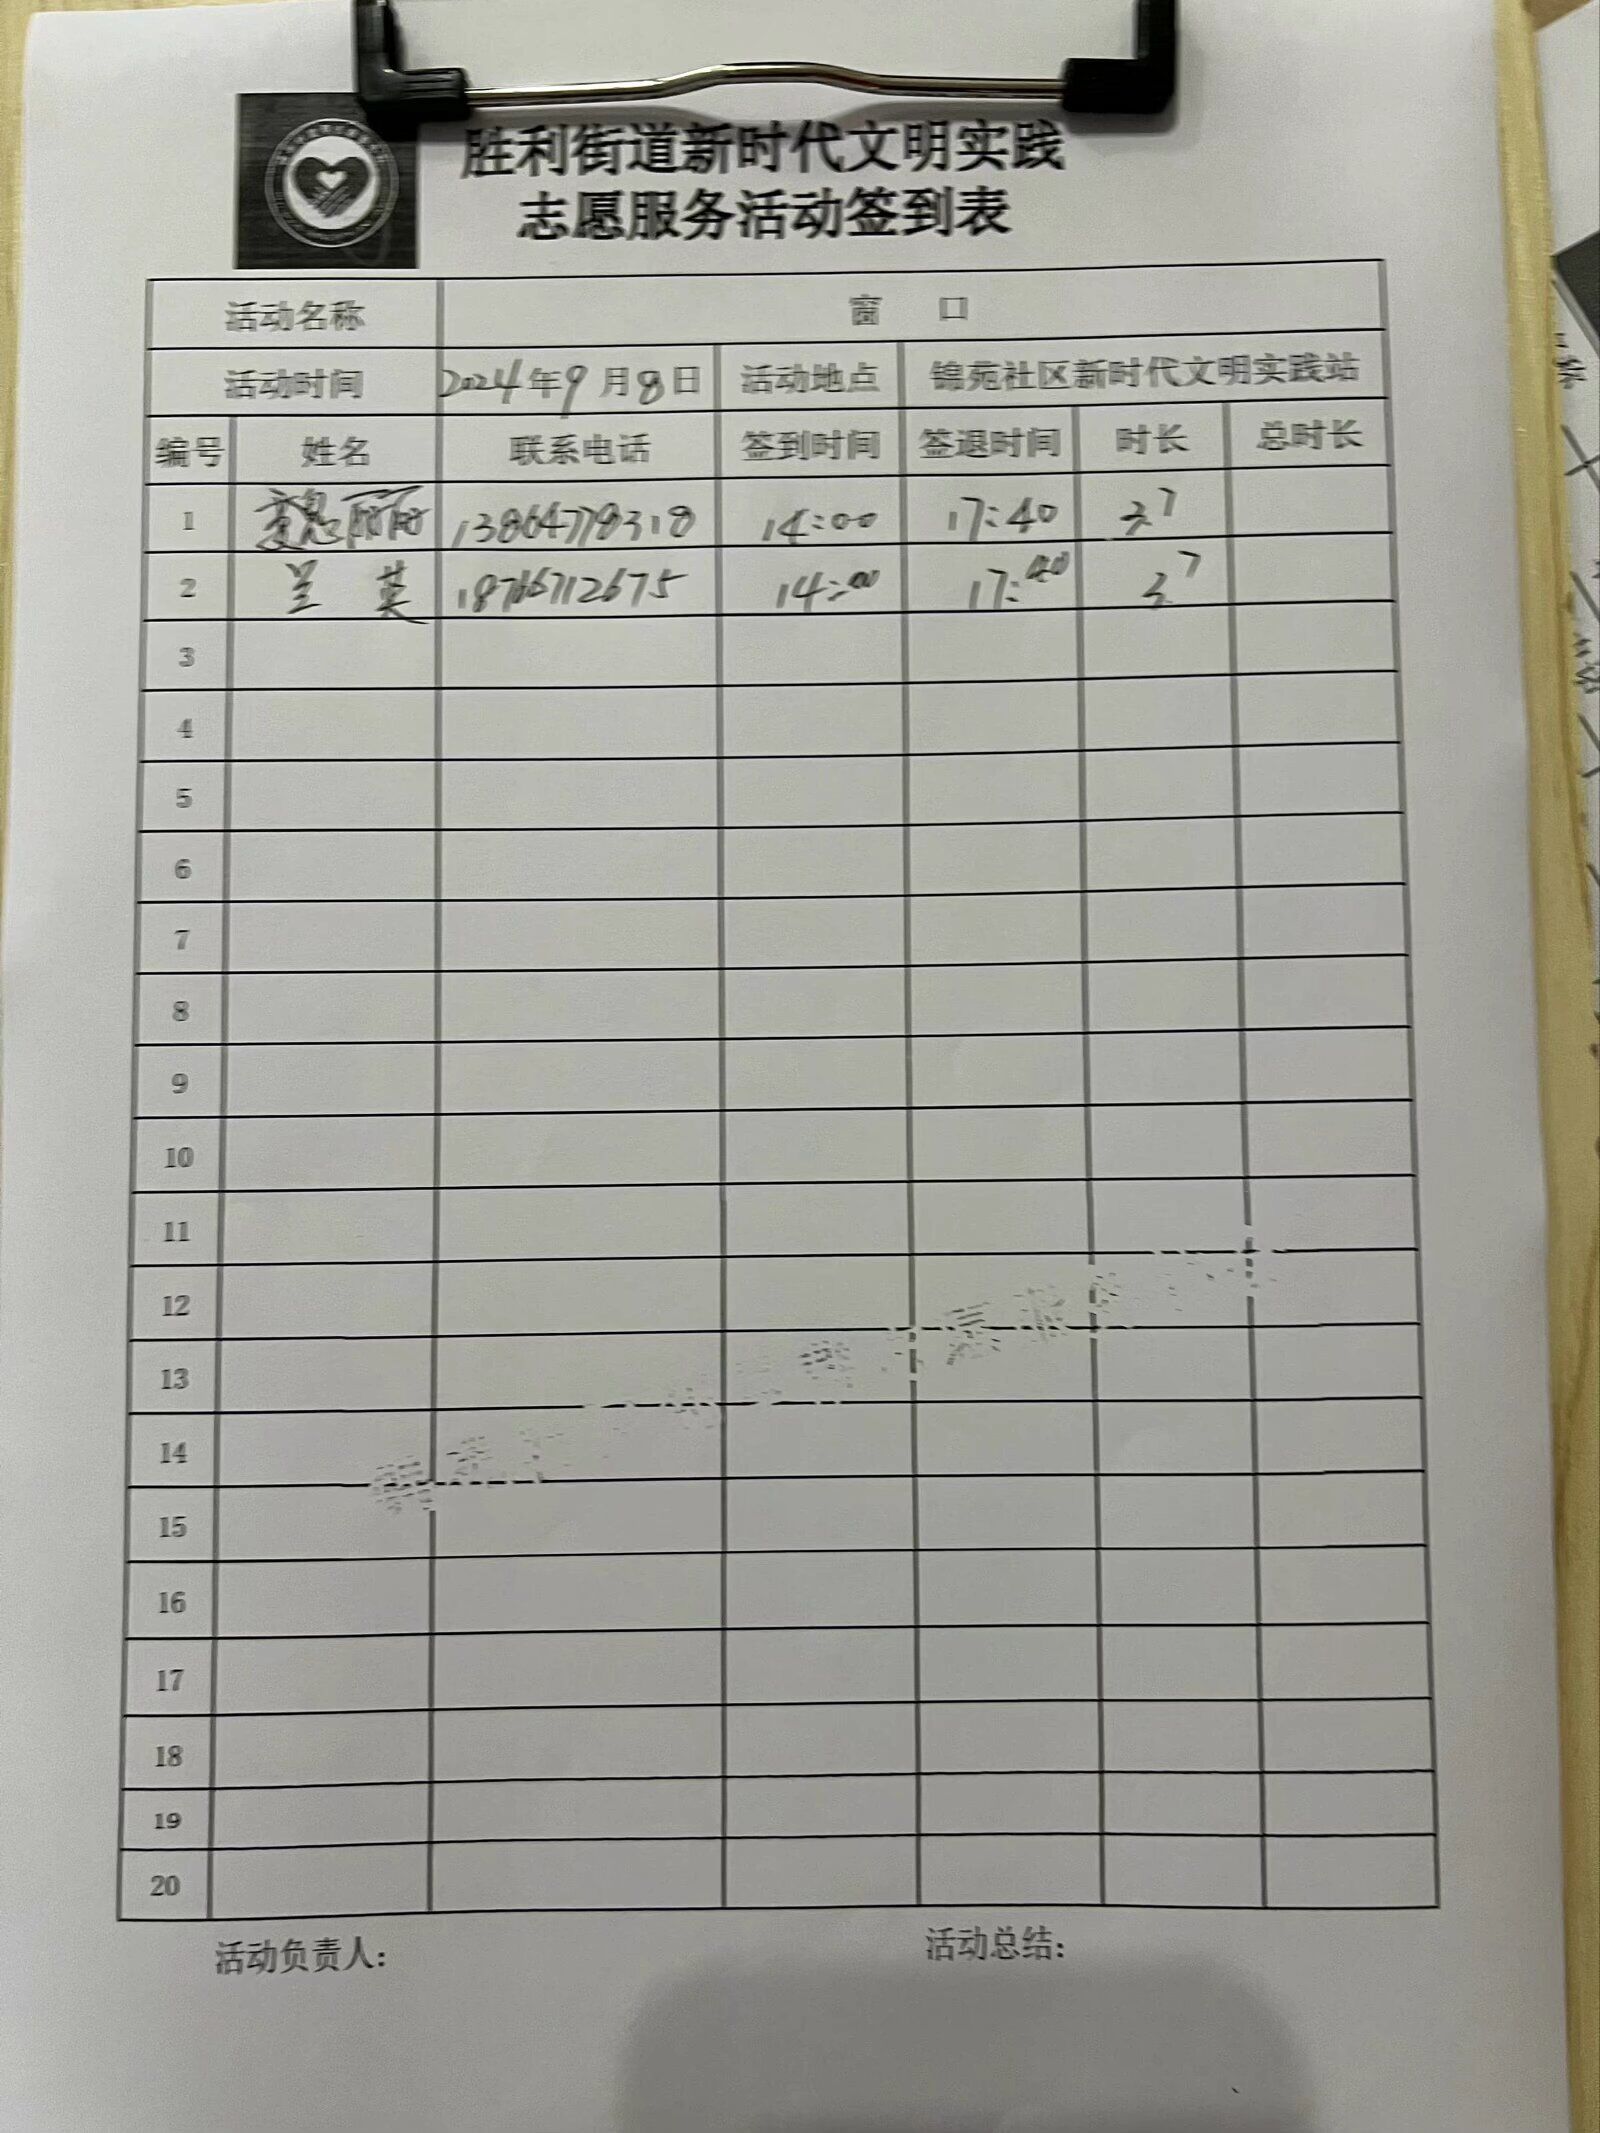 胜利街道新时代文明实践
志愿服务活动签到表
活动名称 窗 口
活动时间 2024年9月8日 活动地点 锦苑社区新时代文明实践站
编号 姓名 联系电话 签到时间 签退时间 时长 总时长
1 丽丽 13864778318 14:00 17:40 3.7
2 兰英 18766712675 14:00 17:40 3.7
3
4
5
6
7
8
9
10
11
12
13
14
15
16
17
18
19
20
活动负责人: 活动总结: